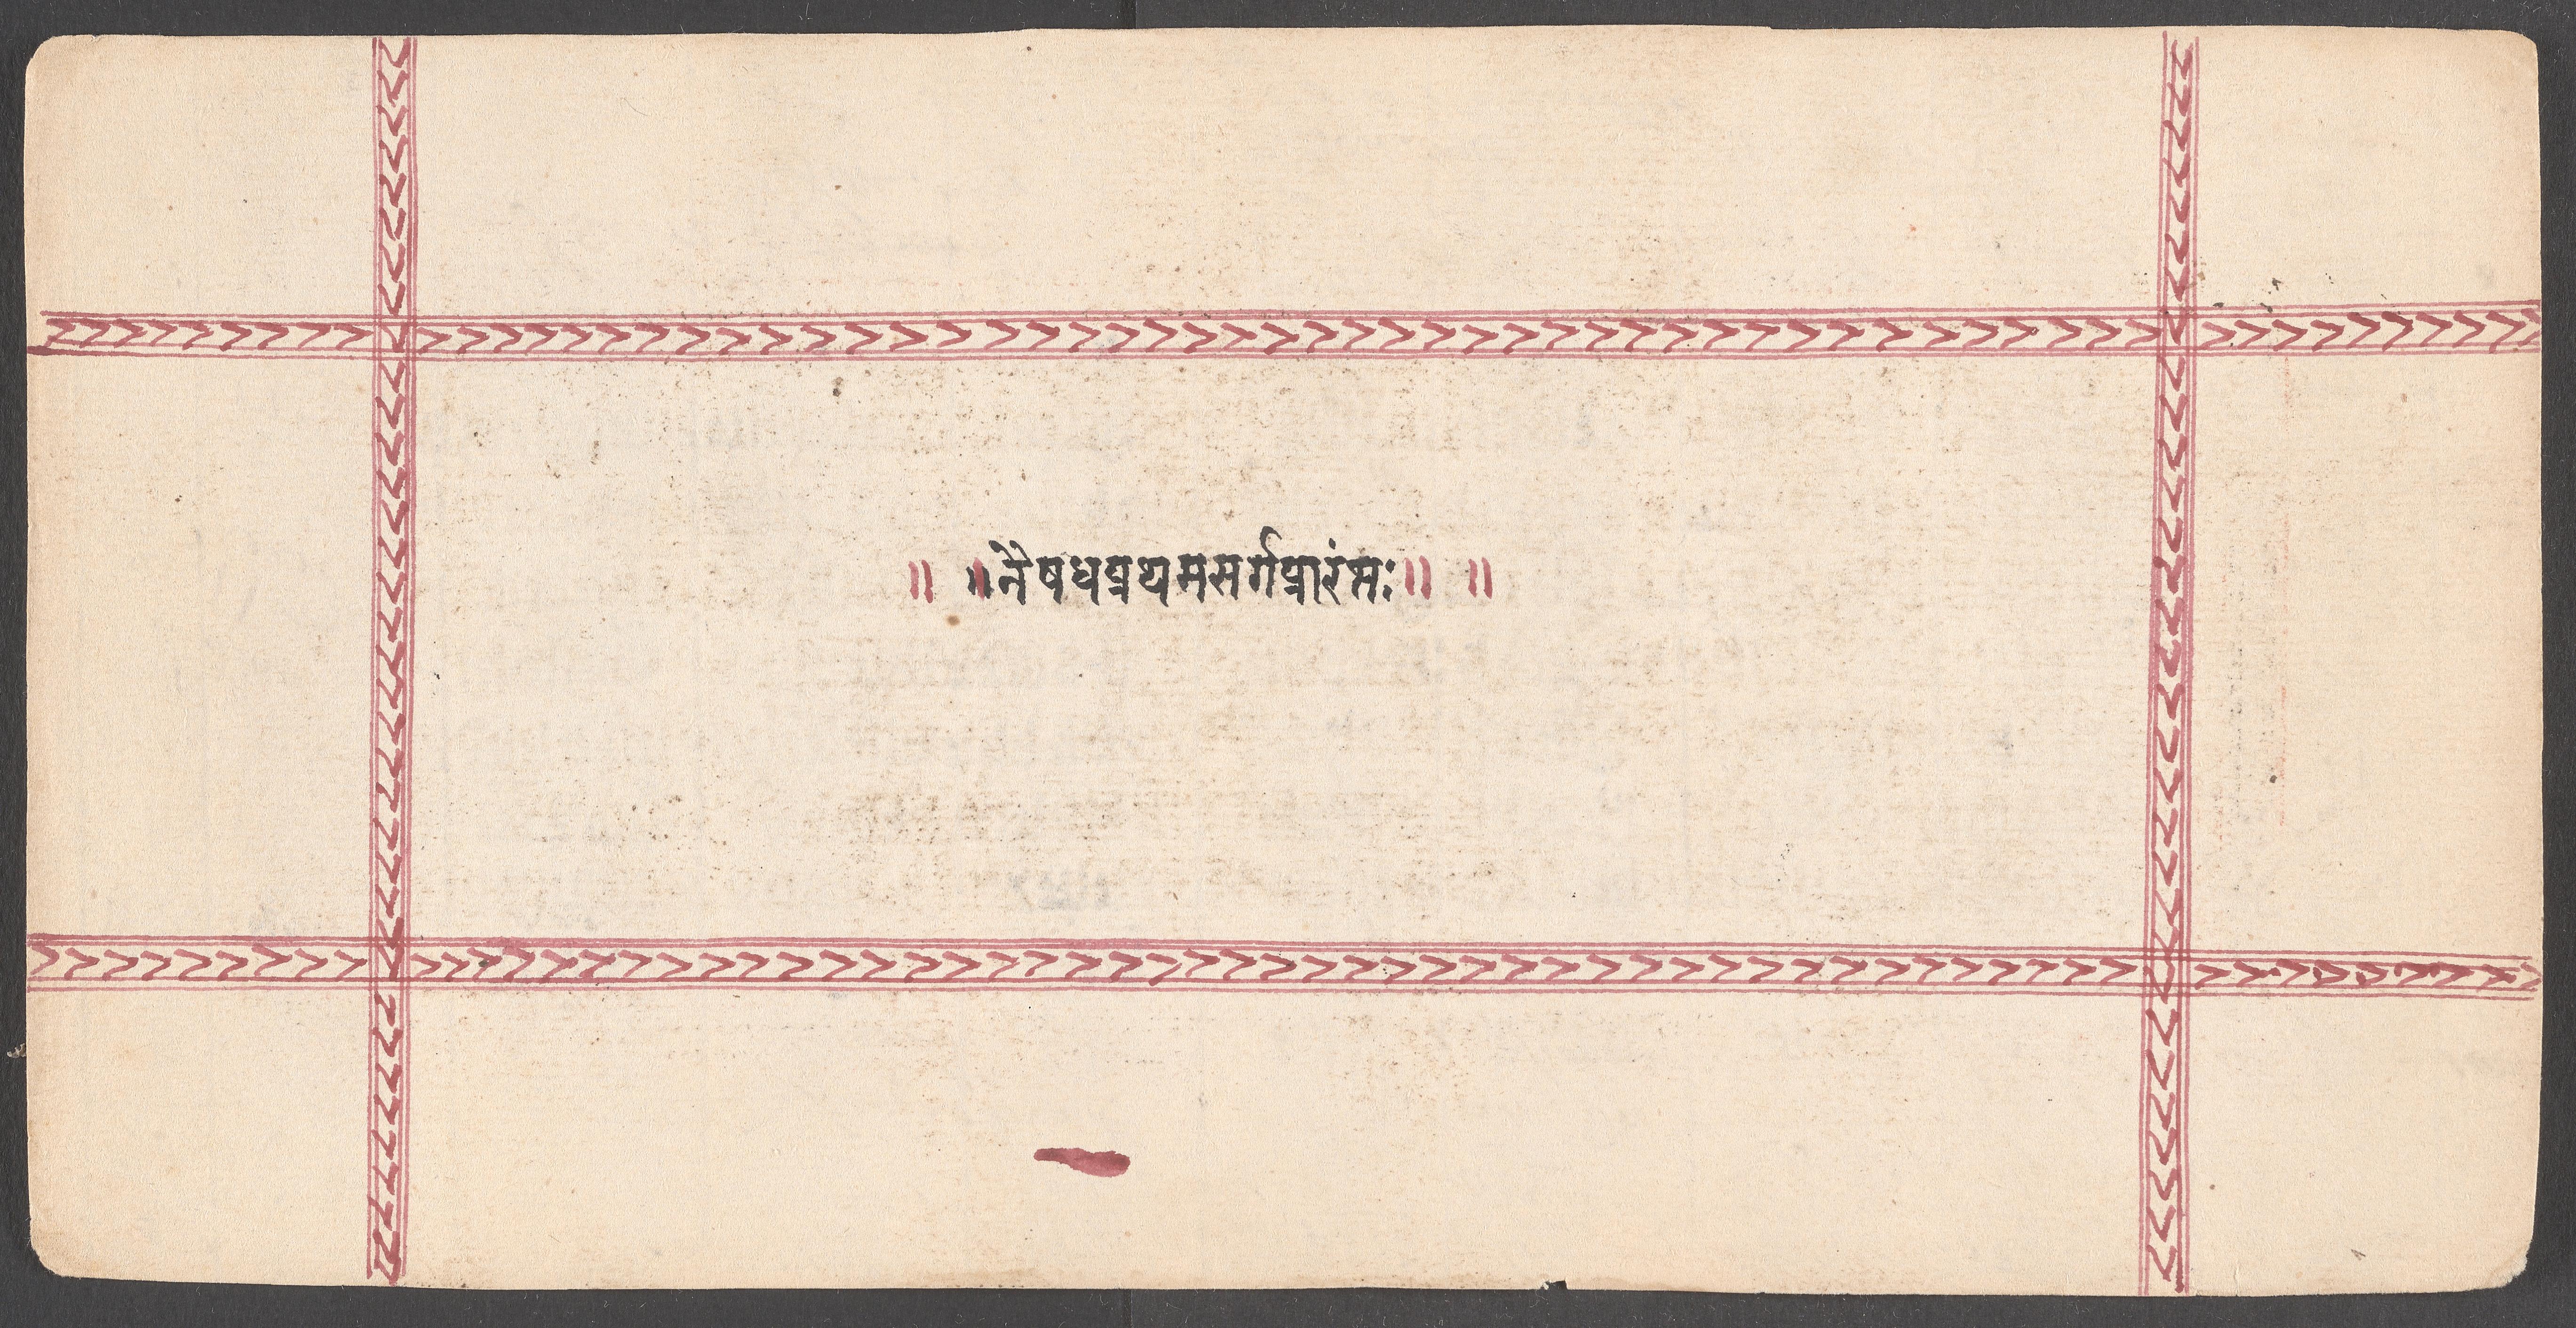 ॥ ॥नैषधप्रथमसर्गप्रारंभः॥ ॥